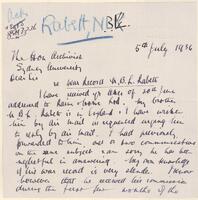 Rabett N.B.
5th July 1936
The Hon Archivist
Sydney University
Dear Sir
re War Record N. B. L. Rabett
I have received yr letter of 30th June
addressed to Rabett & home Rd. My brother
N B L. Rabett is in England & I have written
him by air mail as requested urging him
to reply by air mail. I had previously
forwarded to him one or two communications
on the same subject and sorry he has been
neglectful in answering. My own knowledge
of his war record is very slender. I know
however that he received his commission
during the first few months of the